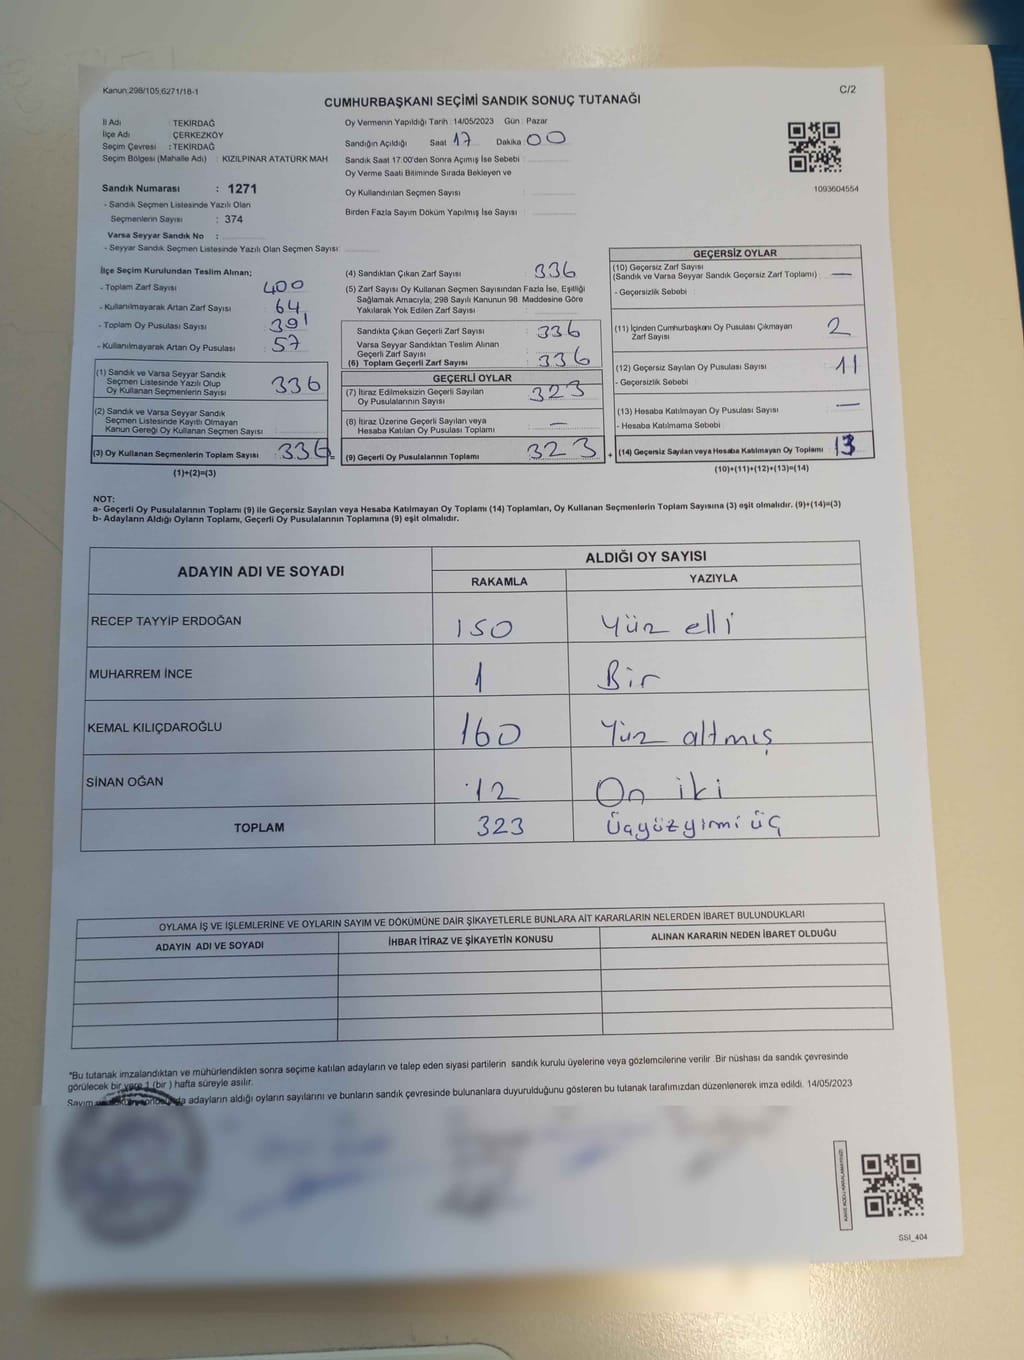 Kanun;298/105,6271/18-1
C/2
CUMHURBAŞKANI SEÇİMİ SANDIK SONUÇ TUTANAĞI
İl Adı : TEKİRDAĞ
İlçe Adı : ÇERKEZKÖY
Seçim Çevresi : TEKİRDAĞ
Seçim Bölgesi (Mahalle Adı) : KIZILPINAR ATATÜRK MAH
Sandık Numarası : 1271
- Sandık Seçmen Listesinde Yazılı Olan
Seçmenlerin Sayısı : 374
Varsa Seyyar Sandık No :
- Seyyar Sandık Seçmen Listesinde Yazılı Olan Seçmen Sayısı
Oy Vermenin Yapıldığı Tarih : 14/05/2023 Gün : Pazar
Sandığın Açıldığı Saat 17 Dakika 00
Sandık Saat 17.00'den Sonra Açımış İse Sebebi :
Oy Verme Saati Bitiminde Sırada Bekleyen ve
Oy Kullandırılan Seçmen Sayısı
Birden Fazla Sayım Döküm Yapılmış İse Sayısı :
1093604554
İlçe Seçim Kurulundan Teslim Alınan;
- Toplam Zarf Sayısı 400
- Kullanılmayarak Artan Zarf Sayısı 64
- Toplam Oy Pusulası Sayısı 391
- Kullanılmayarak Artan Oy Pusulası 57
(1) Sandık ve Varsa Seyyar Sandık
Seçmen Listesinde Yazılı Olup
Oy Kullanan Seçmenlerin Sayısı 336
(2) Sandık ve Varsa Seyyar Sandık
Seçmen Listesinde Kayıtlı Olmayan
Kanun Gereği Oy Kullanan Seçmen Sayısı :
(3) Oy Kullanan Seçmenlerin Toplam Sayısı 336
(1)+(2)=(3)
(4) Sandıktan Çıkan Zarf Sayısı 336
(5) Zarf Sayısı Oy Kullanan Seçmen Sayısından Fazla İse, Eşitliği
Sağlamak Amacıyla, 298 Sayılı Kanunun 98. Maddesine Göre
Yakılarak Yok Edilen Zarf Sayısı
Sandıkta Çıkan Geçerli Zarf Sayısı 336
Varsa Seyyar Sandıktan Teslim Alınan
Geçerli Zarf Sayısı
(6) Toplam Geçerli Zarf Sayısı 336
GEÇERLİ OYLAR
(7) İtiraz Edilmeksizin Geçerli Sayılan
Oy Pusulalarının Sayısı 323
(8) İtiraz Üzerine Geçerli Sayılan veya
Hesaba Katılan Oy Pusulası Toplamı —
(9) Geçerli Oy Pusulalarının Toplamı 323
+
GEÇERSİZ OYLAR
(10) Geçersiz Zarf Sayısı
(Sandık ve Varsa Seyyar Sandık Geçersiz Zarf Toplamı) —
- Geçersizlik Sebebi
(11) İçinden Cumhurbaşkanı Oy Pusulası Çıkmayan
Zarf Sayısı 2
(12) Geçersiz Sayılan Oy Pusulası Sayısı 11
- Geçersizlik Sebebi
(13) Hesaba Katılmayan Oy Pusulası Sayısı —
- Hesaba Katılmama Sebebi
(14) Geçersiz Sayılan veya Hesaba Katılmayan Oy Toplamı 13
(10)+(11)+(12)+(13)=(14)
NOT:
a- Geçerli Oy Pusulalarının Toplamı (9) ile Geçersiz Sayılan veya Hesaba Katılmayan Oy Toplamı (14) Toplamları, Oy Kullanan Seçmenlerin Toplam Sayısına (3) eşit olmalıdır. (9)+(14)=(3)
b- Adayların Aldığı Oyların Toplamı, Geçerli Oy Pusulalarının Toplamına (9) eşit olmalıdır.
ADAYIN ADI VE SOYADI
ALDIĞI OY SAYISI
RAKAMLA YAZIYLA
RECEP TAYYİP ERDOĞAN 150 Yüz elli
MUHARREM İNCE 1 Bir
KEMAL KILIÇDAROĞLU 160 Yüz altmış
SİNAN OĞAN 12 On iki
TOPLAM 323 Üçyüzyirmi üç
OYLAMA İŞ VE İŞLEMLERİNE VE OYLARIN SAYIM VE DÖKÜMÜNE DAİR ŞİKAYETLERLE BUNLARA AİT KARARLARIN NELERDEN İBARET BULUNDUKLARI
ADAYIN ADI VE SOYADI İHBAR İTİRAZ VE ŞİKAYETİN KONUSU ALINAN KARARIN NEDEN İBARET OLDUĞU
"Bu tutanak imzalandıktan ve mühürlendikten sonra seçime katılan adayların ve talep eden siyasi partilerin sandık kurulu üyelerine veya gözlemcilerine verilir. Bir nüshası da sandık çevresinde
görülecek bir yere 1 (bir ) hafta süreyle asılır.
Sayım adayların aldığı oyların sayılarını ve bunların sandık çevresinde bulunanlara duyurulduğunu gösteren bu tutanak tarafımızdan düzenlenerek imza edildi. 14/05/2023
SSI_404